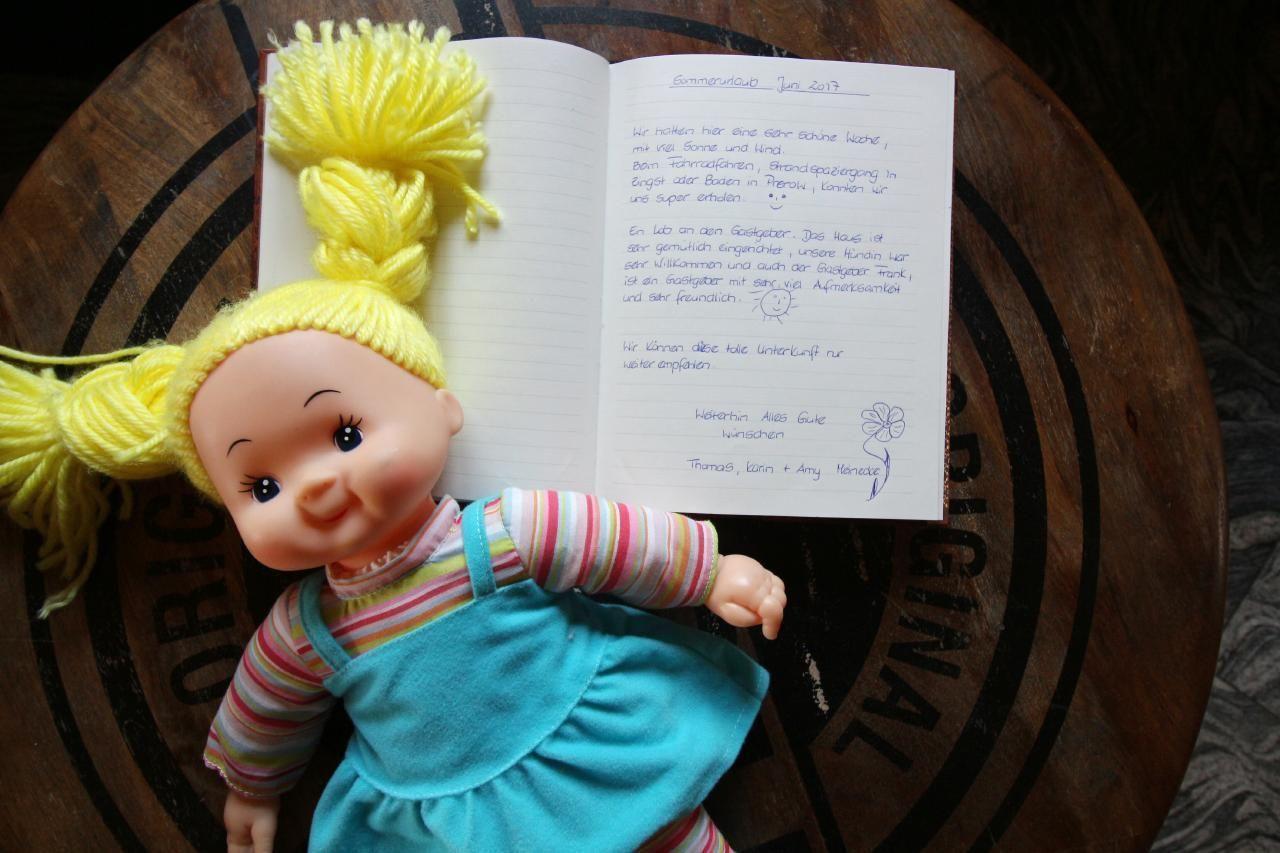 Sommerurlaub Juni 2017
Wir hatten hier eine sehr schöne Woche,
mit viel Sonne und Wind.
Beim Fahrradfahren, Strandspaziergang in
Zingst oder Baden in Prerow, konnten wir
uns super erholen.
Ein Lob an den Gastgeber. Das Haus ist
sehr gemütlich eingerichtet, unsere Hündin war
sehr Willkommen und auch der Gastgeber Frank,
ist ein Gastgeber mit sehr viel Aufmerksamkeit
und sehr freundlich.
Wir können diese tolle Unterkunft nur
weiter empfehlen.
Weiterhin Alles Gute
wünschen
Thomas, Karin + Amy Meinecke
ORIGINAL
ORIG